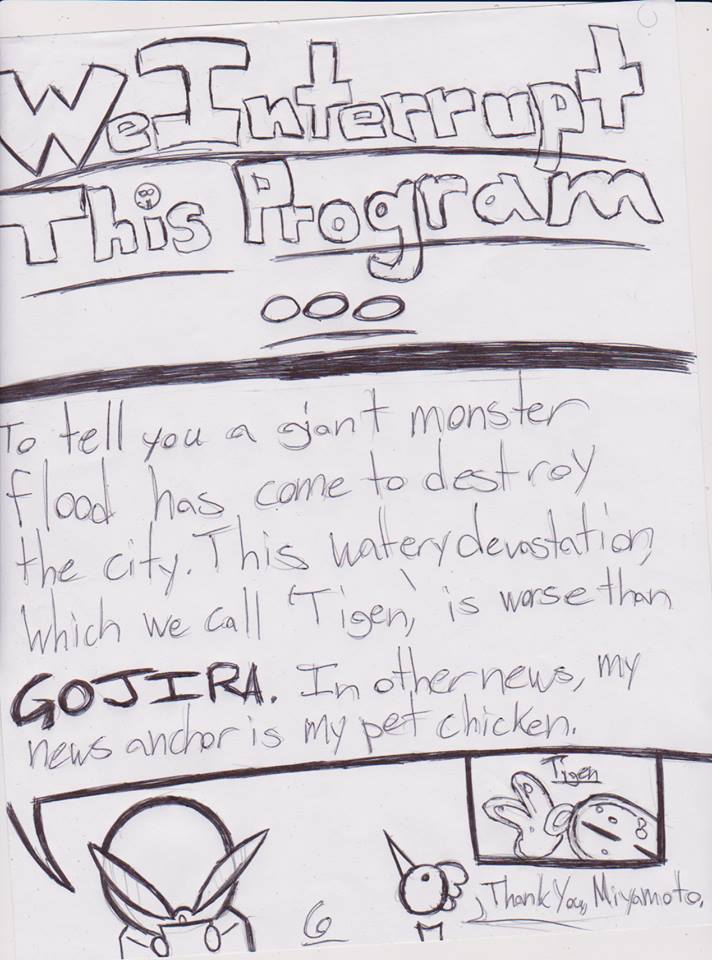 We Interrupt
This Program
...
To tell you a giant monster
flood has come to destroy
the city. This watery devastation,
which we call 'Tigen,' is worse than
GOJIRA. In other news, my
news anchor is my pet chicken.
Tigen
Thank You, Miyamoto.
6